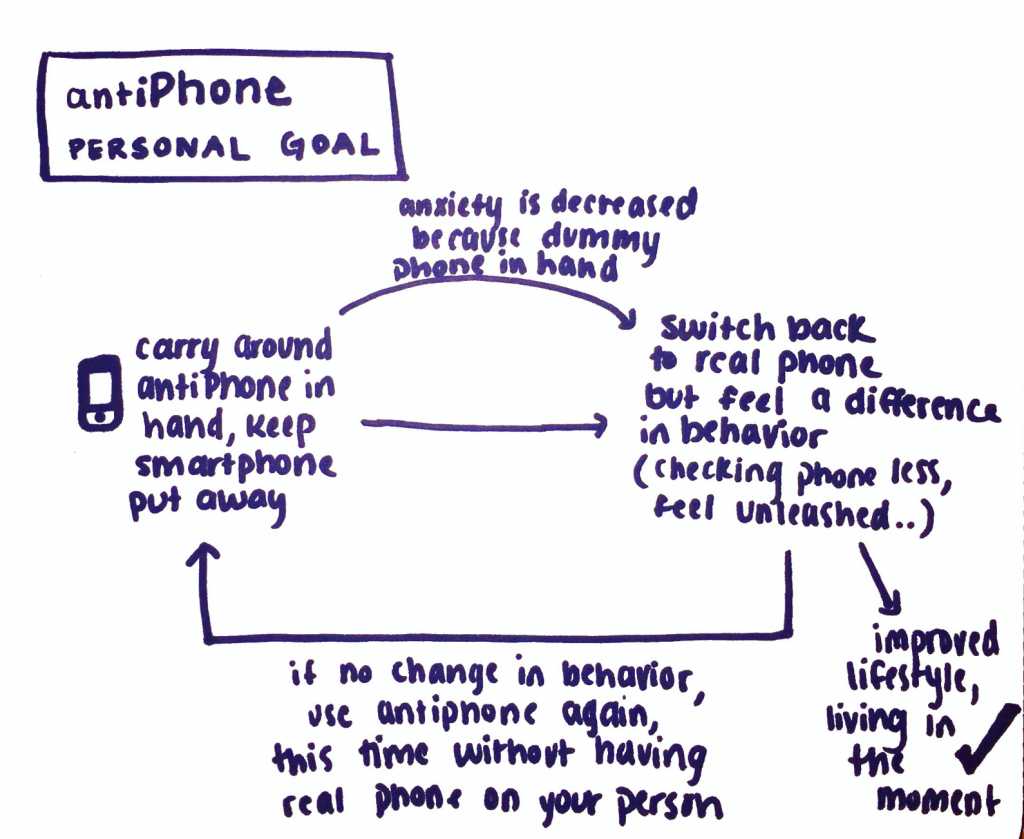 antiPhone
PERSONAL GOAL
anxiety is decreased
because dummy
phone in hand
carry around
antiPhone in
hand, keep
smartphone
put away
switch back
to real phone
but feel a difference
in behavior
(checking phone less,
feel unleashed..)
if no change in behavior,
use antiphone again,
this time without having
real phone on your person
improved
lifestyle,
living in
the
moment